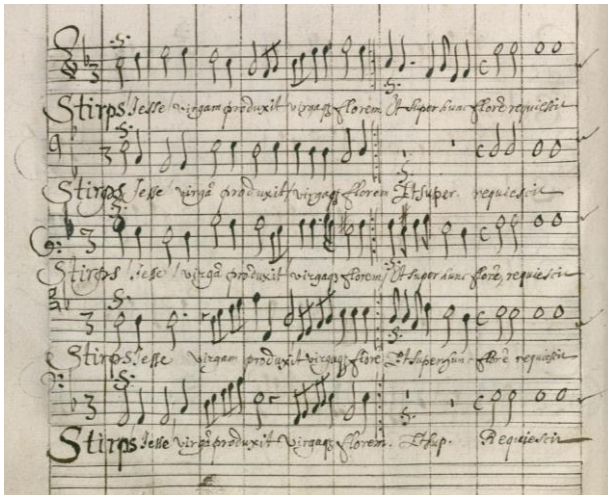 Stirps Jesse virgam produxit virgaq₃ florem Et super hunc flore requiescit
Stirps Jesse virgã produxit virgaq₃ florem Et super. requiescit
Stirps Jesse virgã produxit virgaq₃ florem Et super hunc flore, requiescit
Stirps Jesse virgam produxit virgaq₃ flore Et super hunc flore requiescit
Stirps Jesse virgã produxit virgaq₃ florem. Et sup. Requiescit